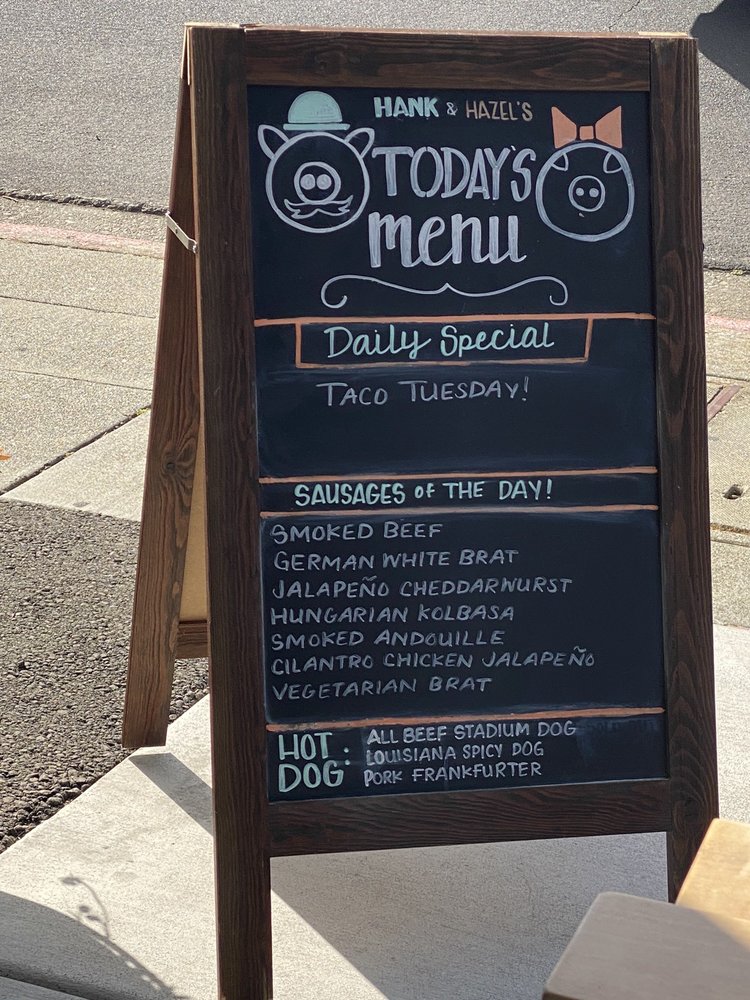 HANK & HAZEL'S
TODAY'S
menu
Daily Special
TACO TUESDAY!
SAUSAGES of THE DAY!
SMOKED BEEF
GERMAN WHITE BRAT
JALAPEÑO CHEDDARWURST
HUNGARIAN KOLBASA
SMOKED ANDOUILLE
CILANTRO CHICKEN JALAPEÑO
VEGETARIAN BRAT
HOT DOG:
ALL BEEF STADIUM DOG
LOUISIANA SPICY DOG
PORK FRANKFURTER